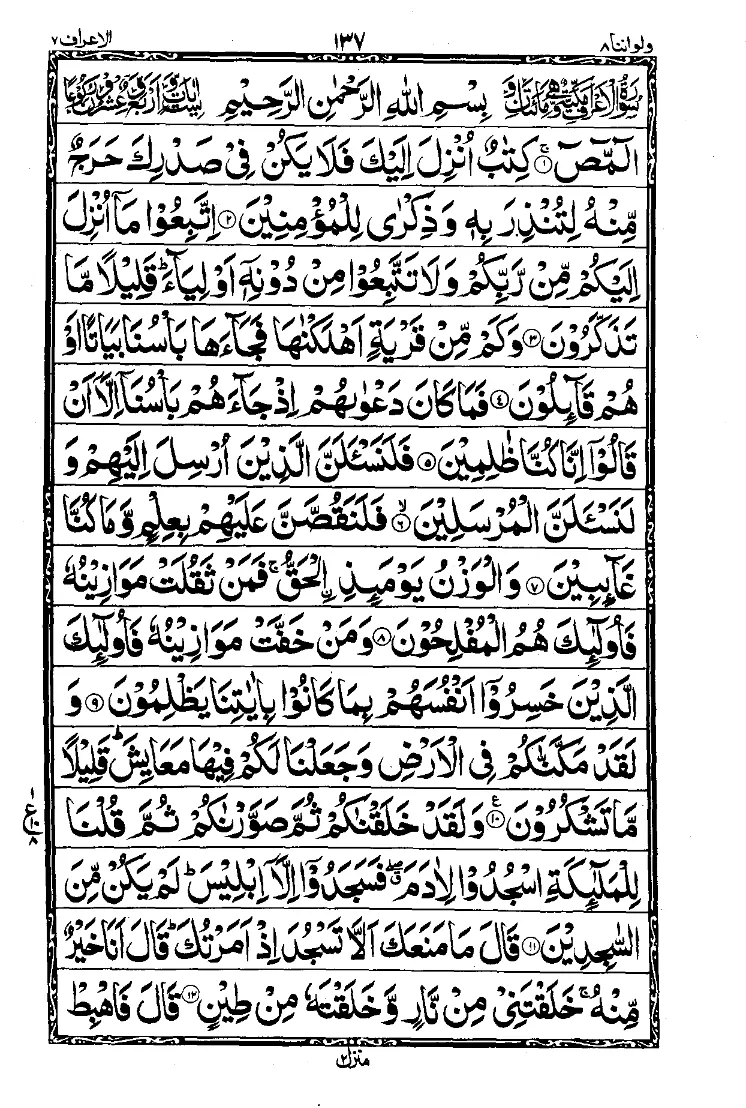 ولواننا٨ ١٣٧ الاعراف٧
سُوْرَةُ الْاَعْرَافِ مَكِّيَّةٌ وَّهِيَ مِائَتَانِ وَّ بِسْمِ اللهِ الرَّحْمٰنِ الرَّحِيْمِ سِتُّ اٰيَاتٍ وَّاَرْبَعٌ وَّعِشْرُوْنَ رُكُوْعًا
الٓمّٓصٓ ۚ﴿١﴾ كِتٰبٌ اُنْزِلَ اِلَيْكَ فَلَا يَكُنْ فِىْ صَدْرِكَ حَرَجٌ
مِّنْهُ لِتُنْذِرَ بِهٖ وَذِكْرٰى لِلْمُؤْمِنِيْنَ ﴿٢﴾ اِتَّبِعُوْا مَاۤ اُنْزِلَ
اِلَيْكُمْ مِّنْ رَّبِّكُمْ وَلَا تَتَّبِعُوْا مِنْ دُوْنِهٖۤ اَوْلِيَآءَ ؕ قَلِيْلًا مَّا
تَذَكَّرُوْنَ ﴿٣﴾ وَكَمْ مِّنْ قَرْيَةٍ اَهْلَكْنٰهَا فَجَآءَهَا بَاْسُنَا بَيَاتًا اَوْ
هُمْ قَآئِلُوْنَ ﴿٤﴾ فَمَا كَانَ دَعْوٰىهُمْ اِذْ جَآءَهُمْ بَاْسُنَاۤ اِلَّاۤ اَنْ
قَالُوْۤا اِنَّا كُنَّا ظٰلِمِيْنَ ﴿٥﴾ فَلَنَسْـَٔلَنَّ الَّذِيْنَ اُرْسِلَ اِلَيْهِمْ وَ
لَنَسْـَٔلَنَّ الْمُرْسَلِيْنَ ۙ﴿٦﴾ فَلَنَقُصَّنَّ عَلَيْهِمْ بِعِلْمٍ وَّمَا كُنَّا
غَآئِبِيْنَ ﴿٧﴾ وَالْوَزْنُ يَوْمَئِذِ ۨالْحَقُّ ۚ فَمَنْ ثَقُلَتْ مَوَازِيْنُهٗ
فَاُولٰٓئِكَ هُمُ الْمُفْلِحُوْنَ ﴿٨﴾ وَمَنْ خَفَّتْ مَوَازِيْنُهٗ فَاُولٰٓئِكَ
الَّذِيْنَ خَسِرُوْۤا اَنْفُسَهُمْ بِمَا كَانُوْا بِاٰيٰتِنَا يَظْلِمُوْنَ ﴿٩﴾ وَ
لَقَدْ مَكَّنّٰكُمْ فِى الْاَرْضِ وَجَعَلْنَا لَكُمْ فِيْهَا مَعَايِشَ ؕ قَلِيْلًا
مَّا تَشْكُرُوْنَ ﴿١٠﴾ وَلَقَدْ خَلَقْنٰكُمْ ثُمَّ صَوَّرْنٰكُمْ ثُمَّ قُلْنَا
١ ع ١٠ ٨
لِلْمَلٰٓئِكَةِ اسْجُدُوْا لِاٰدَمَ ۖۗ فَسَجَدُوْۤا اِلَّاۤ اِبْلِيْسَ ؕ لَمْ يَكُنْ مِّنَ
السّٰجِدِيْنَ ﴿١١﴾ قَالَ مَا مَنَعَكَ اَلَّا تَسْجُدَ اِذْ اَمَرْتُكَ ؕ قَالَ اَنَا خَيْرٌ
مِّنْهُ ۚ خَلَقْتَنِىْ مِنْ نَّارٍ وَّخَلَقْتَهٗ مِنْ طِيْنٍ ﴿١٢﴾ قَالَ فَاهْبِطْ
منزل٢